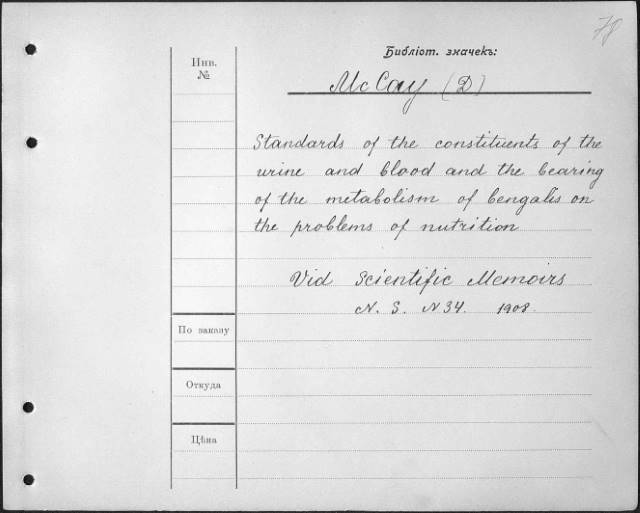 78
Библіот. значекъ:
Инв.
№
McCay (D)
Standards of the constituents of the
urine and blood and the bearing
of the metabolism of bengalis on
the problems of nutrition
Vid Scientific Memoirs
N. S. N 34. 1908.
По заказу
Откуда
Цѣна